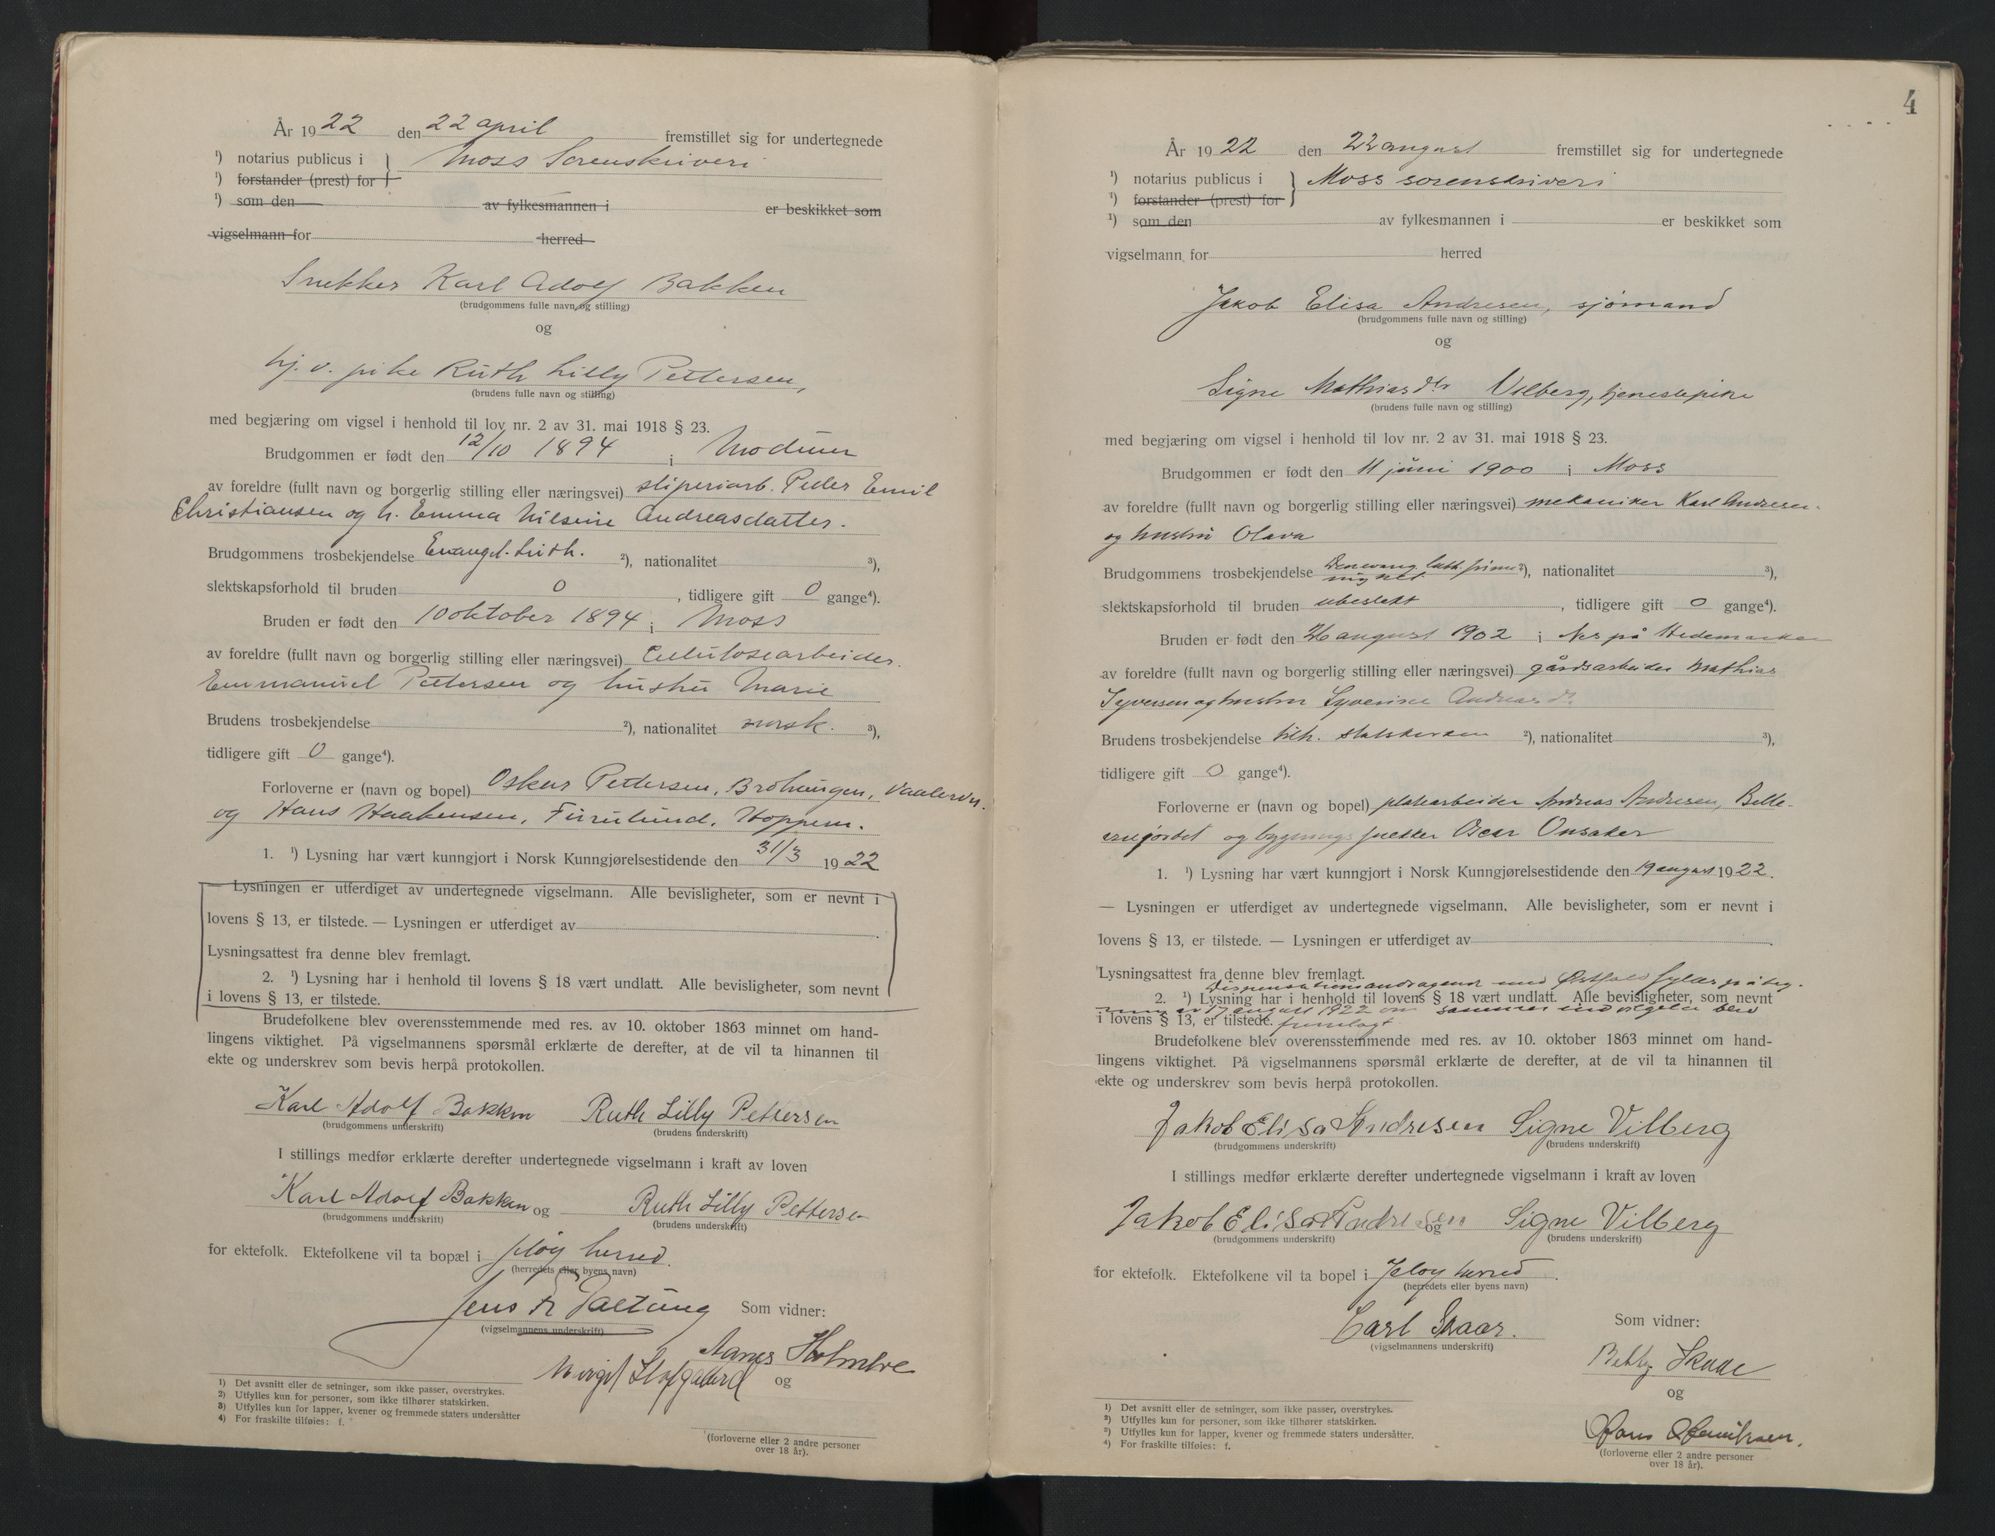 År 1922 den 22 april fremstillet sig for undertegnede
¹) notarius publicus i } Moss Sorenskriveri
¹) forstander (prest) for
¹) som den av fylkesmannen i er beskikket som
vigselmann for herred
Snekker Karl Adolf Bakken
(brudgommens fulle navn og stilling)
og
hj. v. pike Ruth Lilly Pettersen,
(brudens fulle navn og stilling)
med begjæring om vigsel i henhold til lov nr. 2 av 31. mai 1918 § 23.
Brudgommen er født den 12/10 1894 i Modum
av foreldre (fullt navn og borgerlig stilling eller næringsvei) sliperiarb. Peder Emil
Christiansen og h. Emma Nilsine Andreasdatter.
Brudgommens trosbekjendelse Evangel. luth. ²), nationalitet ³),
slektskapsforhold til bruden 0, tidligere gift 0 gange⁴).
Bruden er født den 10 oktober 1894 i Moss
av foreldre (fullt navn og borgerlig stilling eller næringsvei) Cellulosearbeider
Emmanuel Pettersen og hustru Marie
Brudens trosbekjendelse ²), nationalitet norsk. ³),
tidligere gift 0 gange⁴).
Forloverne er (navn og bopel) Oskar Pettersen, Vaaler
og Hans Haakensen, Furulund,
1. ¹) Lysning har vært kunngjort i Norsk Kunngjørelsestidende den 31/3 1922
— Lysningen er utferdiget av undertegnede vigselmann. Alle bevisligheter, som er nevnt i
lovens § 13, er tilstede. — Lysningen er utferdiget av
Lysningsattest fra denne blev fremlagt.
2. ¹) Lysning har i henhold til lovens § 18 vært undlatt. Alle bevisligheter, som nevnt
i lovens § 13, er tilstede.
Brudefolkene blev overensstemmende med res. av 10. oktober 1863 minnet om hand-
lingens viktighet. På vigselmannens spørsmål erklærte de derefter, at de vil ta hinannen til
ekte og underskrev som bevis herpå protokollen.
Karl Adolf Bakken Ruth Lilly Pettersen
(brudgommens underskrift) (brudens underskrift)
I stillings medfør erklærte derefter undertegnede vigselmann i kraft av loven
Karl Adolf Bakken og Ruth Lilly Pettersen
(brudgommens underskrift) (brudens underskrift)
for ektefolk. Ektefolkene vil ta bopæl i Jeløy herred.
(herredets eller byens navn)
Jens Som vidner:
(vigselmannens underskrift)
Holmboe
og
¹) Det avsnitt eller de setninger, som ikke passer, overstrykes.
²) Utfylles kun for personer, som ikke tilhører statskirken.
³) Utfylles kun for lapper, kvener og fremmede staters undersåtter
⁴) For fraskilte tilføies: f.
(forloverne eller 2 andre personer
over 18 år).
4
År 1922 den 22 august fremstillet sig for undertegnede
¹) notarius publicus i } Moss sorenskriveri
¹) forstander (prest) for
¹) som den av fylkesmannen i er beskikket som
vigselmann for herred
Jakob Elisa Andresen, sjömand
(brudgommens fulle navn og stilling)
og
Signe Mathiasdtr Vilberg, tjenestepike
(brudens fulle navn og stilling)
med begjæring om vigsel i henhold til lov nr. 2 av 31. mai 1918 § 23.
Brudgommen er født den 11 juni 1900 i Moss
av foreldre (fullt navn og borgerlig stilling eller næringsvei) mekaniker Karl Andresen
og hustru Olava
Brudgommens trosbekjendelse Den evang. luth. frime²), nationalitet ³),
nighet
slektskapsforhold til bruden ubeslekt, tidligere gift 0 gange⁴).
Bruden er født den 26 august 1902 i Nes på Hedemarken
av foreldre (fullt navn og borgerlig stilling eller næringsvei) gårdsarbeider Mathias
Syversen og hustru Syverine Andreasdt
Brudens trosbekjendelse tilh. statskirken ²), nationalitet ³),
tidligere gift 0 gange⁴).
Forloverne er (navn og bopel) platearbeider Andreas Andresen, Belle-
og bygningssnekker Oscar Onsaker
1. ¹) Lysning har vært kunngjort i Norsk Kunngjørelsestidende den 19 august 1922.
— Lysningen er utferdiget av undertegnede vigselmann. Alle bevisligheter, som er nevnt i
lovens § 13, er tilstede. — Lysningen er utferdiget av
Lysningsattest fra denne blev fremlagt.
Dispensationsandragende med Østfold fylkes påteg-
2. ¹) Lysning har i henhold til lovens § 18 vært undlatt. Alle bevisligheter, som nevnt
ning av 17 august 1922 om blev
i lovens § 13, er tilstede. fremlagt
Brudefolkene blev overensstemmende med res. av 10. oktober 1863 minnet om hand-
lingens viktighet. På vigselmannens spørsmål erklærte de derefter, at de vil ta hinannen til
ekte og underskrev som bevis herpå protokollen.
Jakob Elisa Andresen Signe Vilberg
(brudgommens underskrift) (brudens underskrift)
I stillings medfør erklærte derefter undertegnede vigselmann i kraft av loven
Jakob Elisa Andresen og Signe Vilberg
(brudgommens underskrift) (brudens underskrift)
for ektefolk. Ektefolkene vil ta bopel i Jeløy herred.
(herredets eller byens navn)
Carl Skaar. Som vidner:
(vigselmannens underskrift)
Betty Skade
og
Hans Henriksen.
¹) Det avsnitt eller de setninger, som ikke passer, overstrykes.
²) Utfylles kun for personer, som ikke tilhører statskirken.
³) Utfylles kun for lapper, kvener og fremmede staters undersåtter.
⁴) For fraskilte tilføies: f.
(forloverne eller 2 andre personer
over 18 år).